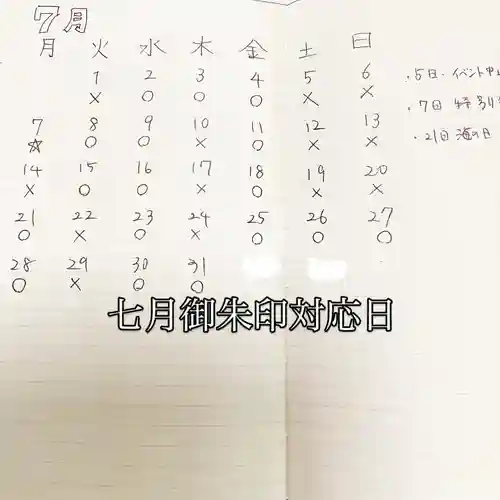 7月
月 火 水 木 金 土 日
1 2 3 4 5 6
× ○ ○ ○ × ×
7 8 9 10 11 12 13
☆ ○ ○ × ○ × ×
14 15 16 17 18 19 20
× ○ ○ × ○ × ×
21 22 23 24 25 26 27
○ × ○ × ○ ○ ○
28 29 30 31
○ × ○ ○
・5日・イベント中
・7日 特別
・21日 海の日
七月御朱印対応日